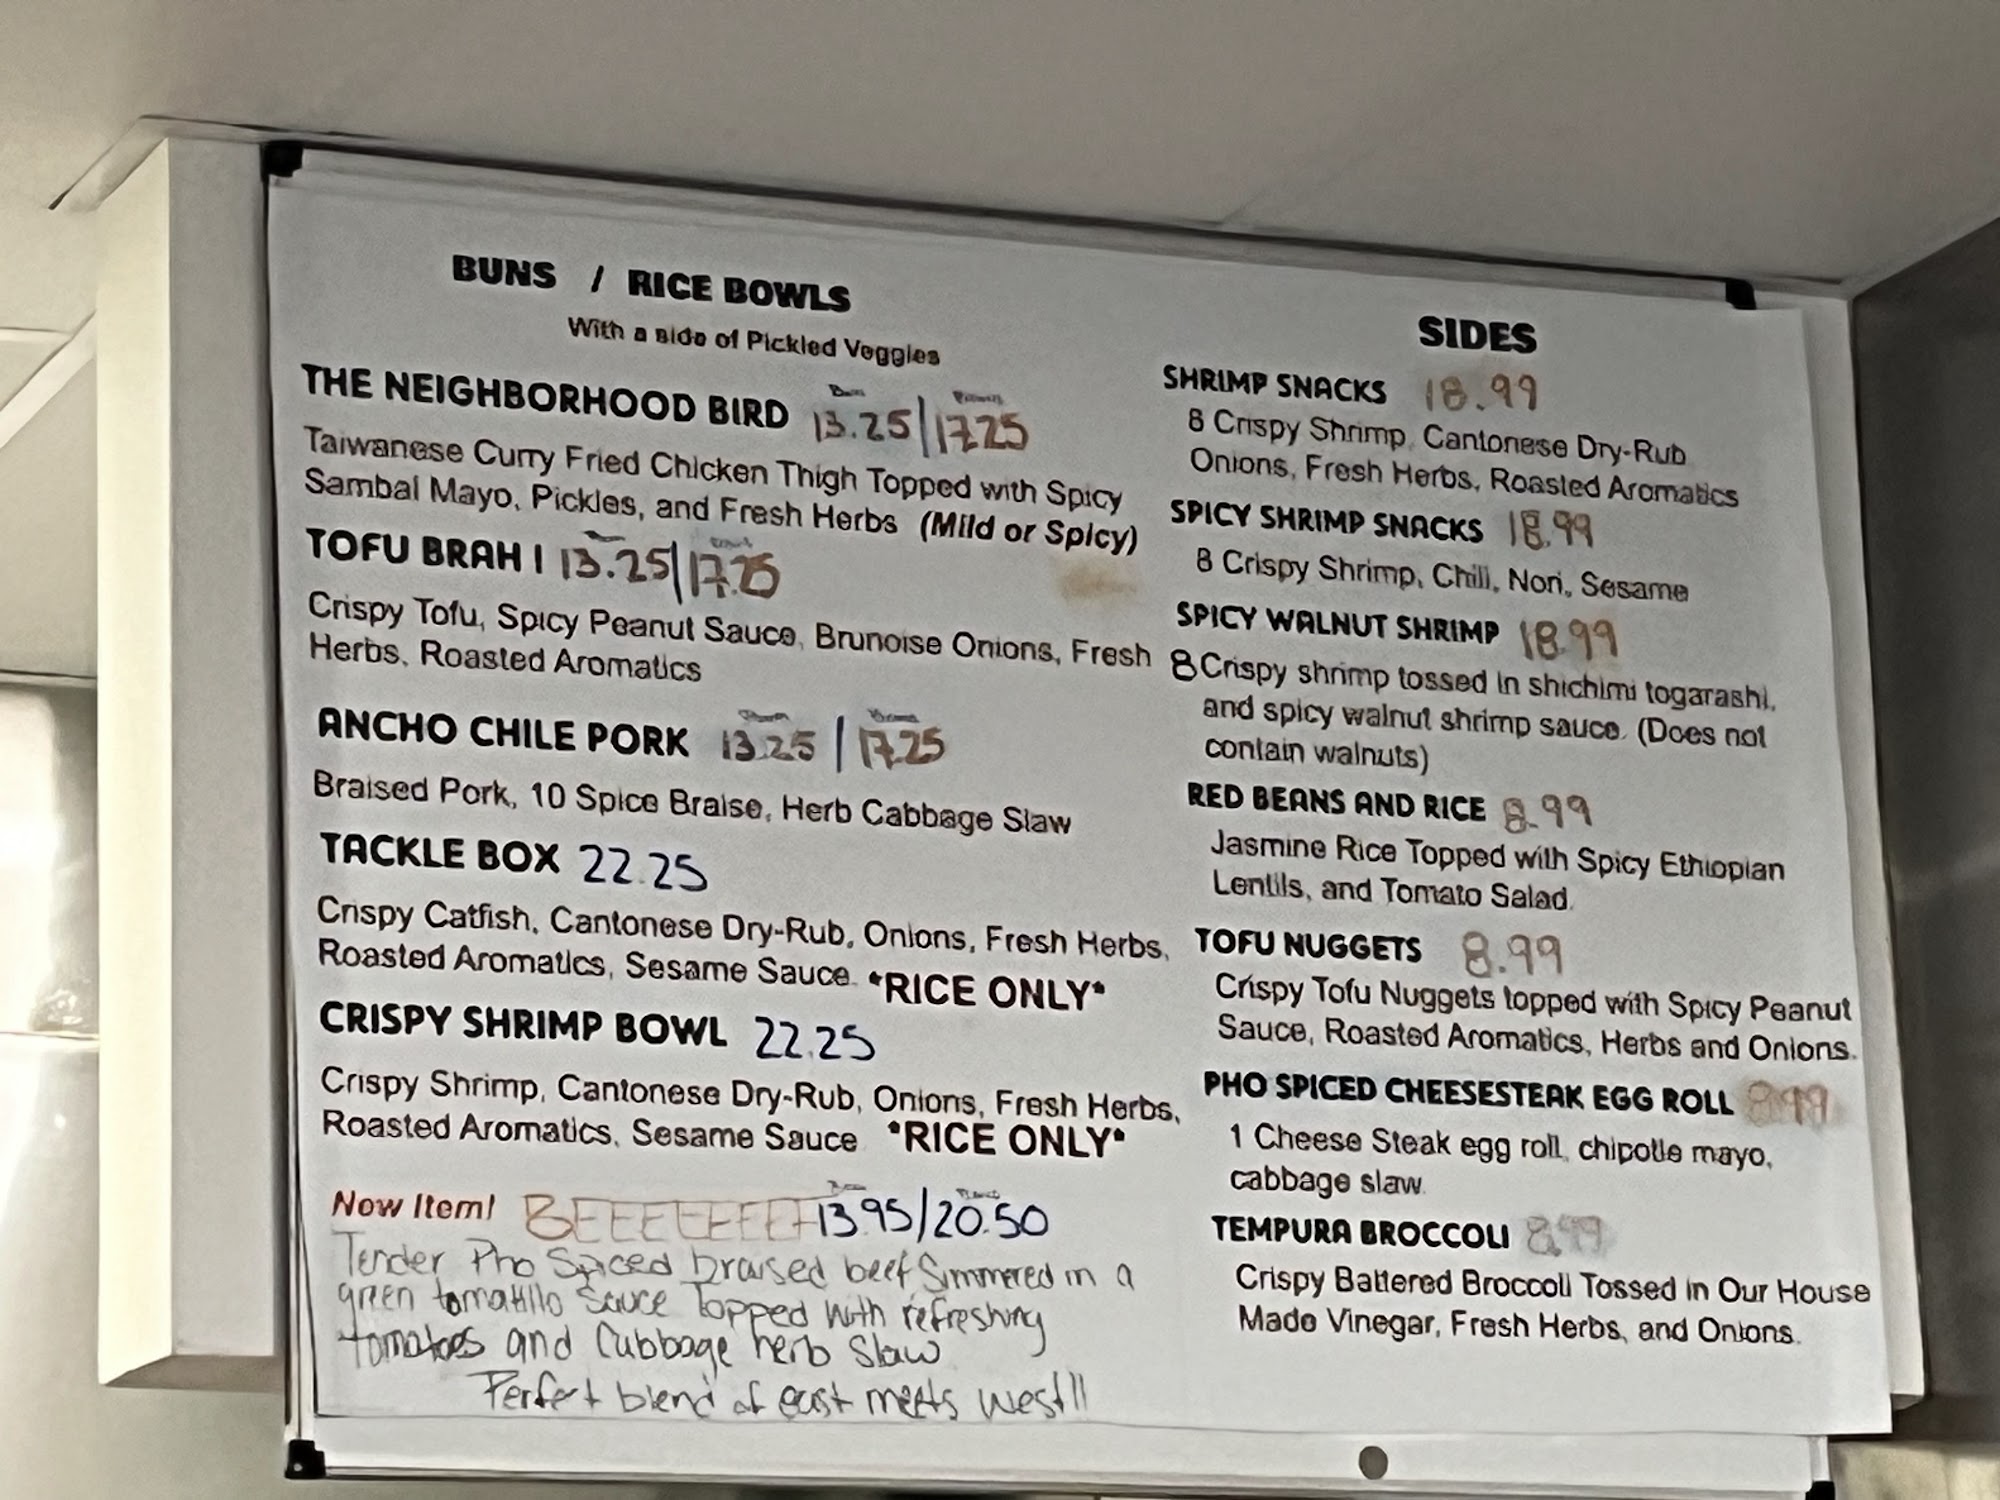 BUNS / RICE BOWLS
With a side of Pickled Veggies
THE NEIGHBORHOOD BIRD 13.25 | 17.25
Taiwanese Curry Fried Chicken Thigh Topped with Spicy
Sambal Mayo, Pickles, and Fresh Herbs (Mild or Spicy)
TOFU BRAH ! 13.25 | 17.25
Crispy Tofu, Spicy Peanut Sauce, Brunoise Onions, Fresh
Herbs, Roasted Aromatics
ANCHO CHILE PORK 13.25 | 17.25
Braised Pork, 10 Spice Braise, Herb Cabbage Slaw
TACKLE BOX 22.25
Crispy Catfish, Cantonese Dry-Rub, Onions, Fresh Herbs,
Roasted Aromatics, Sesame Sauce. *RICE ONLY*
CRISPY SHRIMP BOWL 22.25
Crispy Shrimp, Cantonese Dry-Rub, Onions, Fresh Herbs,
Roasted Aromatics, Sesame Sauce *RICE ONLY*
New Item! 13.95/20.50
Tender Pho Spiced braised beef Simmered in a
green tomatillo Sauce Topped with refreshing
tomatoes and Cabbage herb Slaw
Perfect blend of east meets west!!
SIDES
SHRIMP SNACKS 18.99
8 Crispy Shrimp, Cantonese Dry-Rub
Onions, Fresh Herbs, Roasted Aromatics
SPICY SHRIMP SNACKS 18.99
8 Crispy Shrimp, Chili, Nori, Sesame
SPICY WALNUT SHRIMP 18.99
8 Crispy shrimp tossed in shichimi togarashi,
and spicy walnut shrimp sauce. (Does not
contain walnuts)
RED BEANS AND RICE 8.99
Jasmine Rice Topped with Spicy Ethiopian
Lentils, and Tomato Salad.
TOFU NUGGETS 8.99
Crispy Tofu Nuggets topped with Spicy Peanut
Sauce, Roasted Aromatics, Herbs and Onions.
PHO SPICED CHEESESTEAK EGG ROLL 8.99
1 Cheese Steak egg roll, chipotle mayo,
cabbage slaw.
TEMPURA BROCCOLI 8.99
Crispy Battered Broccoli Tossed in Our House
Made Vinegar, Fresh Herbs, and Onions.